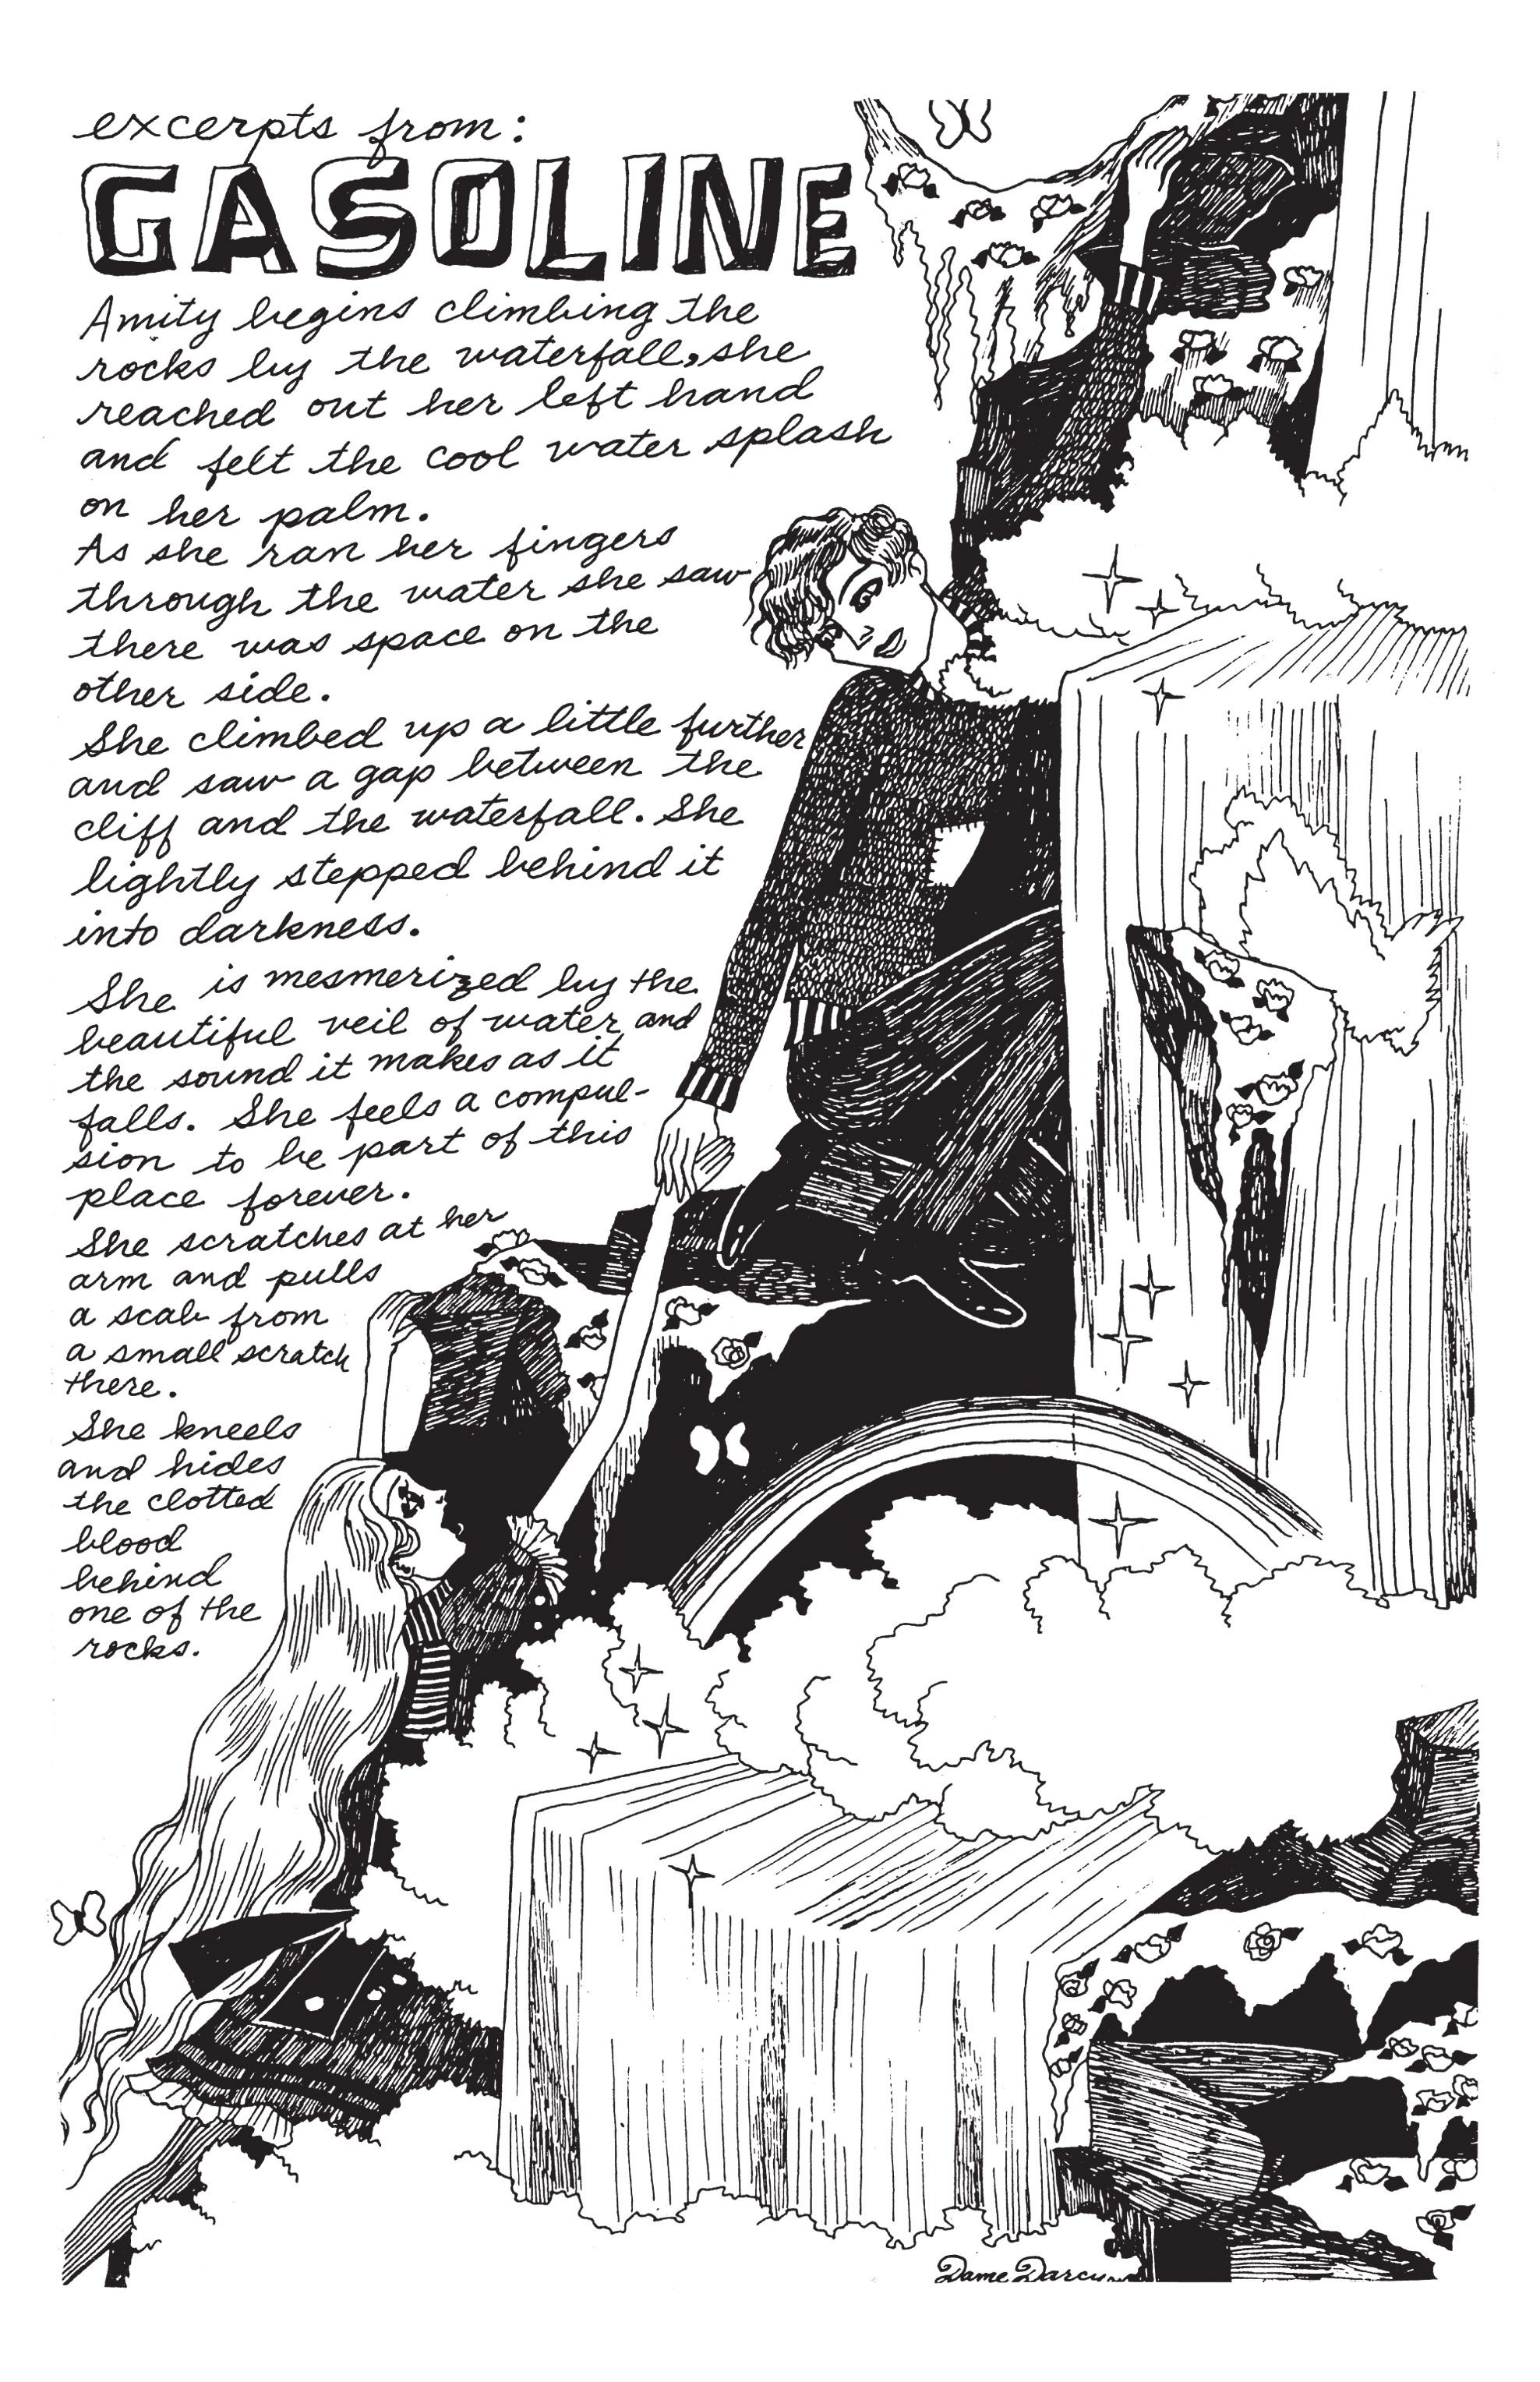 excerpts from:
GASOLINE
Amity begins climbing the
rocks by the waterfall, she
reached out her left hand
and felt the cool water splash
on her palm.
As she ran her fingers
through the water she saw
there was space on the
other side.
She climbed up a little further
and saw a gap between the
cliff and the waterfall. She
lightly stepped behind it
into darkness.
She is mesmerized by the
beautiful veil of water and
the sound it makes as it
falls. She feels a compul-
sion to be part of this
place forever.
She scratches at her
arm and pulls
a scab from
a small scratch
there.
She kneels
and hides
the clotted
blood
behind
one of the
rocks.
Dame Darcy